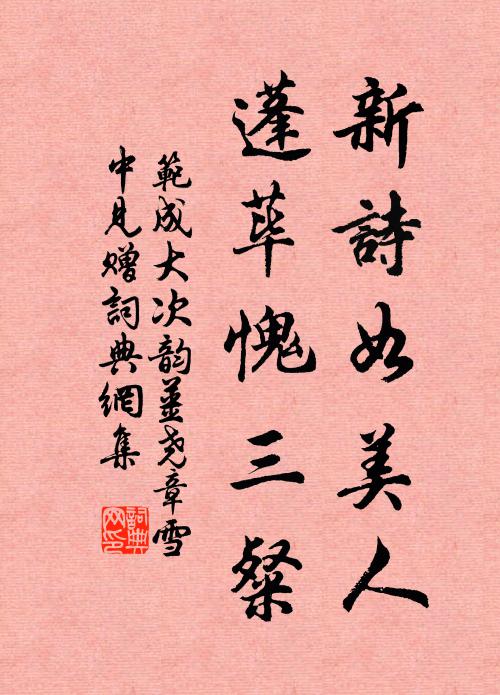 新詩如美人
蓬蓽愧三粲
範成大次韵薑尧章雪
中見贈詞典網集
詞典
网印